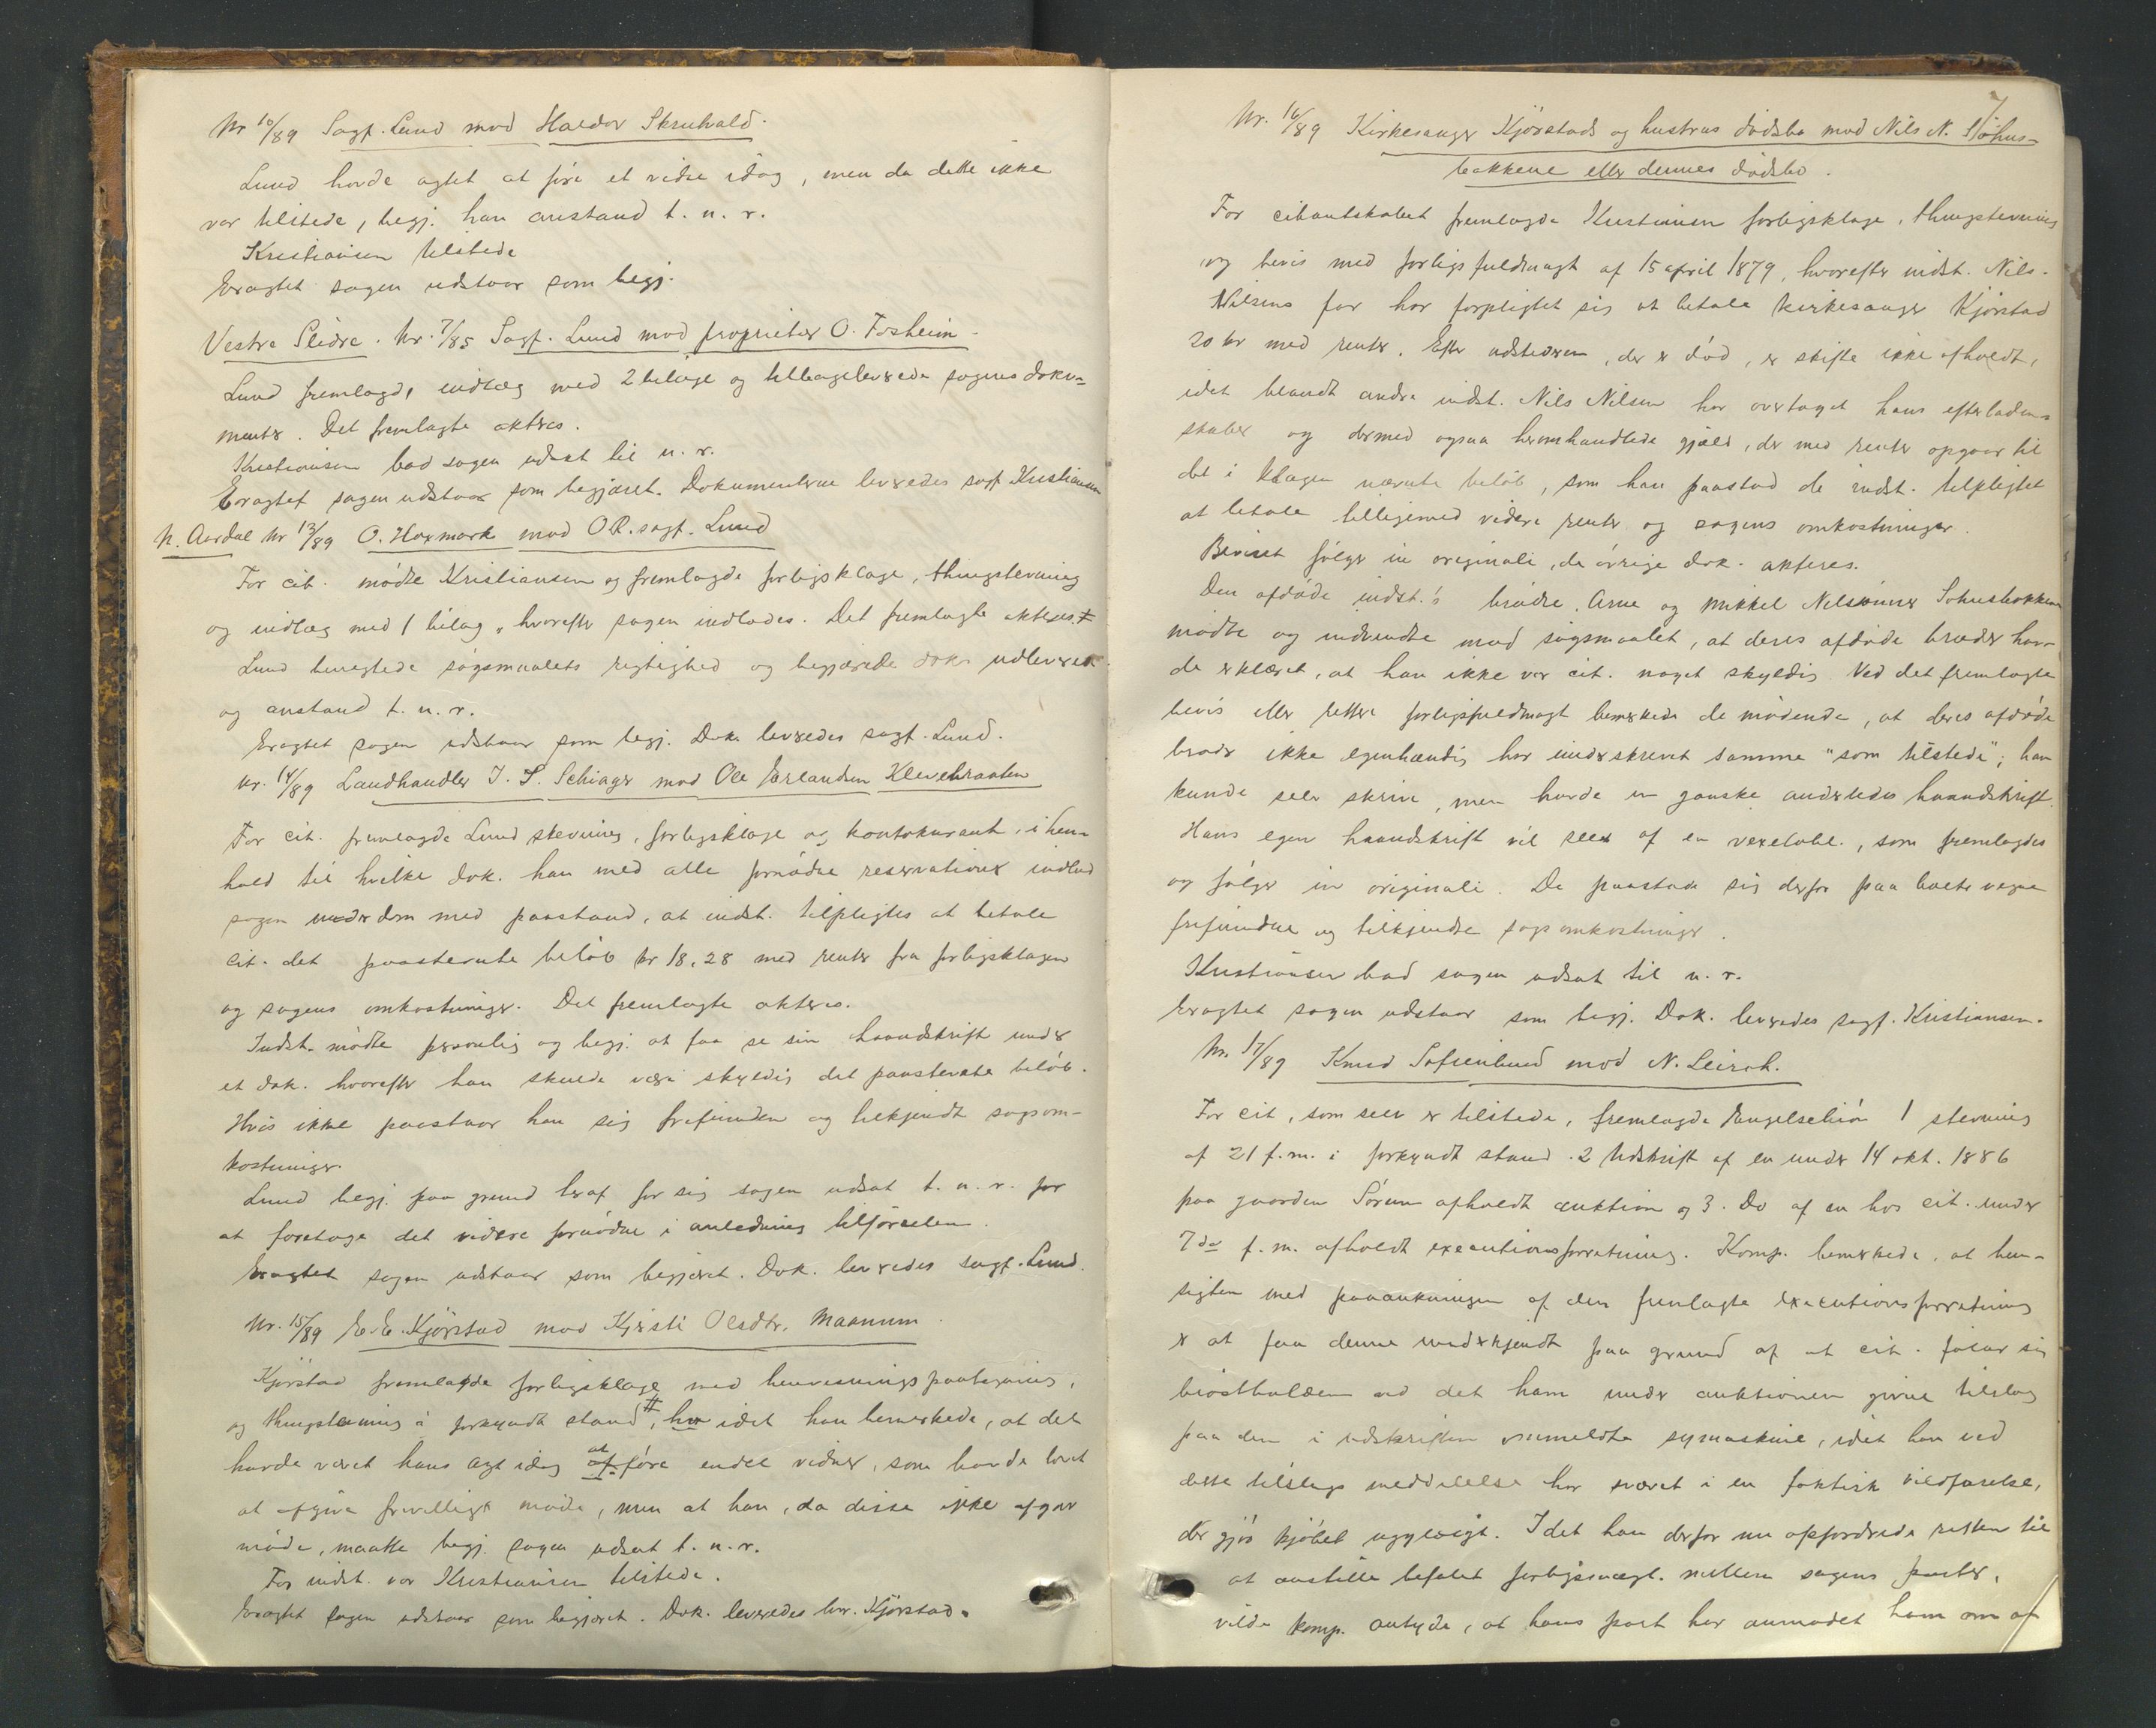 Nr 10/89 Sagf. Lund mod Haldor Skrutvald.
Lund havde agtet at føre et vidne idag, men da dette ikke
var tilstede, begj. han anstand t. n. r.
Kristiansen tilstede
Eragtet sagen udstaar som begj.
Vestre Slidre. Nr. 7/85 Sagf. Lund mod proprietær O. Fosheim.
Lund fremlagde indlæg med 2 bilage og tilbageleverede sagens doku=
menter. Det fremlagte akteres.
Kristiansen bad sagen udsat til n. r.
Eragtet sagen udstaar som begjæret. Dokumenterne leveredes sagf. Kristiansen
N. Aurdal Nr 13/89 O. Haxmark mod O.R. sagf. Lund
For cit. mødte Kristiansen og fremlagde forligsklage, thingstevning
og indlæg med 1 bilag, hvorefter sagen indlodes. Det fremlagte akteres.
Lund benegtede søgsmaalets rigtighed og begjærede dok. udleveret
og anstand t. n. r.
Eragtet sagen udstaar som begj. Dok. leveredes sagf. Lund.
Nr. 14/89 Landhandler I. S. Schiager mod Ole Erlandsen Klevebraaten
For cit. fremlagde Lund stevning, forligsklage og kontokurant, i hen=
hold til hvilke dok. han med alle fornødne reservationer indlod
sagen under dom med paastand, at indst. tilpligtes at betale
cit. det paastevnte beløb kr 18,28 med renter fra forligsklagen
og sagens omkostninger. Det fremlagte akteres.
Indst. mødte personlig og begj. at faa se sin haandskrift under
et dok. hvorefter han skulde være skyldig det paastevnte beløb.
Hvis ikke paastaar han sig frifunden og tilkjendt sagsom-
kostninger.
Lund begj. paa grund heraf for sig sagen udsat t. n. r. for
at foretage det videre fornødne i anledning tilførselen.
Eragtet sagen udstaar som begjæret. Dok. leveredes sagf. Lund.
Nr. 15/89 E. E. Kjørstad mod Kjersti Olsdtr. Maanum.
Kjørstad fremlagde forligsklage med henvisningspaategning,
og thingstevning i forkyndt stand #, idet han bemerkede, at det
havde været hans agt idag at føre endel vidner, som havde lovet
at afgive frivilligt møde, men at han, da disse ikke afgav
møde, maatte begj. sagen udsat t. n. r.
For indst. var Kristiansen tilstede.
Eragtet sagen udstaar som begjæret. Dok. leveredes hr. Kjørstad.
7
Nr. 16/89 Kirkesanger Kjørstads og hustrus dødsbo mod Nils N. Søhus=
bakkene eller dennes dødsbo.
For citantskabet fremlagde Kristiansen forligsklage, thingstevning
og bevis med forligsfuldmagt af 15 april 1879, hvorefter indst. Nils
Nilsens far har forpligtet sig at betale kirkesanger Kjørstad
20 kr med renter. Efter udstederen, der er død, er skifte ikke afholdt,
idet blandt andre indst. Nils Nilsen har overtaget hans efterladen=
skaber og dermed ogsaa heromhandlede gjæld, der med renter opgaar til
det i klagen nævnte beløb, som han paastod de indst. tilpligtet
at betale tilligemed videre renter og sagens omkostninger.
Beviset følger in originali, de øvrige dok. akteres.
Den afdøde indst.'s brødre, Arne og Mikkel Nilssønner Søhusbakken
mødte og indvendte mod søgsmaalet, at deres afdøde broder hav=
de erklæret, at han ikke var cit. noget skyldig. Ved det fremlagte
bevis eller rettere forligsfuldmagt bemerkede de mødende, at deres afdøde
broder ikke egenhændig har underskrevet samme "som tilstede"; han
kunde selv skrive, men havde en ganske anderledes haandskrift.
Hans egen haandskrift vil sees af en vexelobl., som fremlagdes
og følger in originali. De paastod sig derfor paa boets vegne
frifundne og tilkjendte sagsomkostninger.
Kristiansen bad sagen udsat til n. r.
Eragtet sagen udstaar som begj. Dok. leveredes sagf. Kristiansen.
Nr. 17/89 Knud Sofienlund mod N. Leirah.
For cit., som selv er tilstede, fremlagde Engelschiøn 1 stevning
af 21 f. m. i forkyndt stand. 2 Udskrift af en under 14 okt. 1886
paa gaarden Sørum afholdt auktion og 3. Do af en hos cit. under
7de f. m. afholdt executionsforretning. Komp. bemerkede, at hen-
sigten med paaankningen af den fremlagte executionsforretning
er at faa denne underkjendt paa grund af at cit. følar sig
brøstholden ved det ham under auktionen givne tilslag
paa den i udskriften ommeldte symaskine, idet han ved
dette tilslags meddelelse har været i en faktisk vildfarelse,
der gjør kjøbet ugyldigt. Idet han derfor nu opfordrede retten til
at anstille befalet forligsmægl. mellem sagens parter,
vilde komp. antyde, at hans part har anmodet ham om at